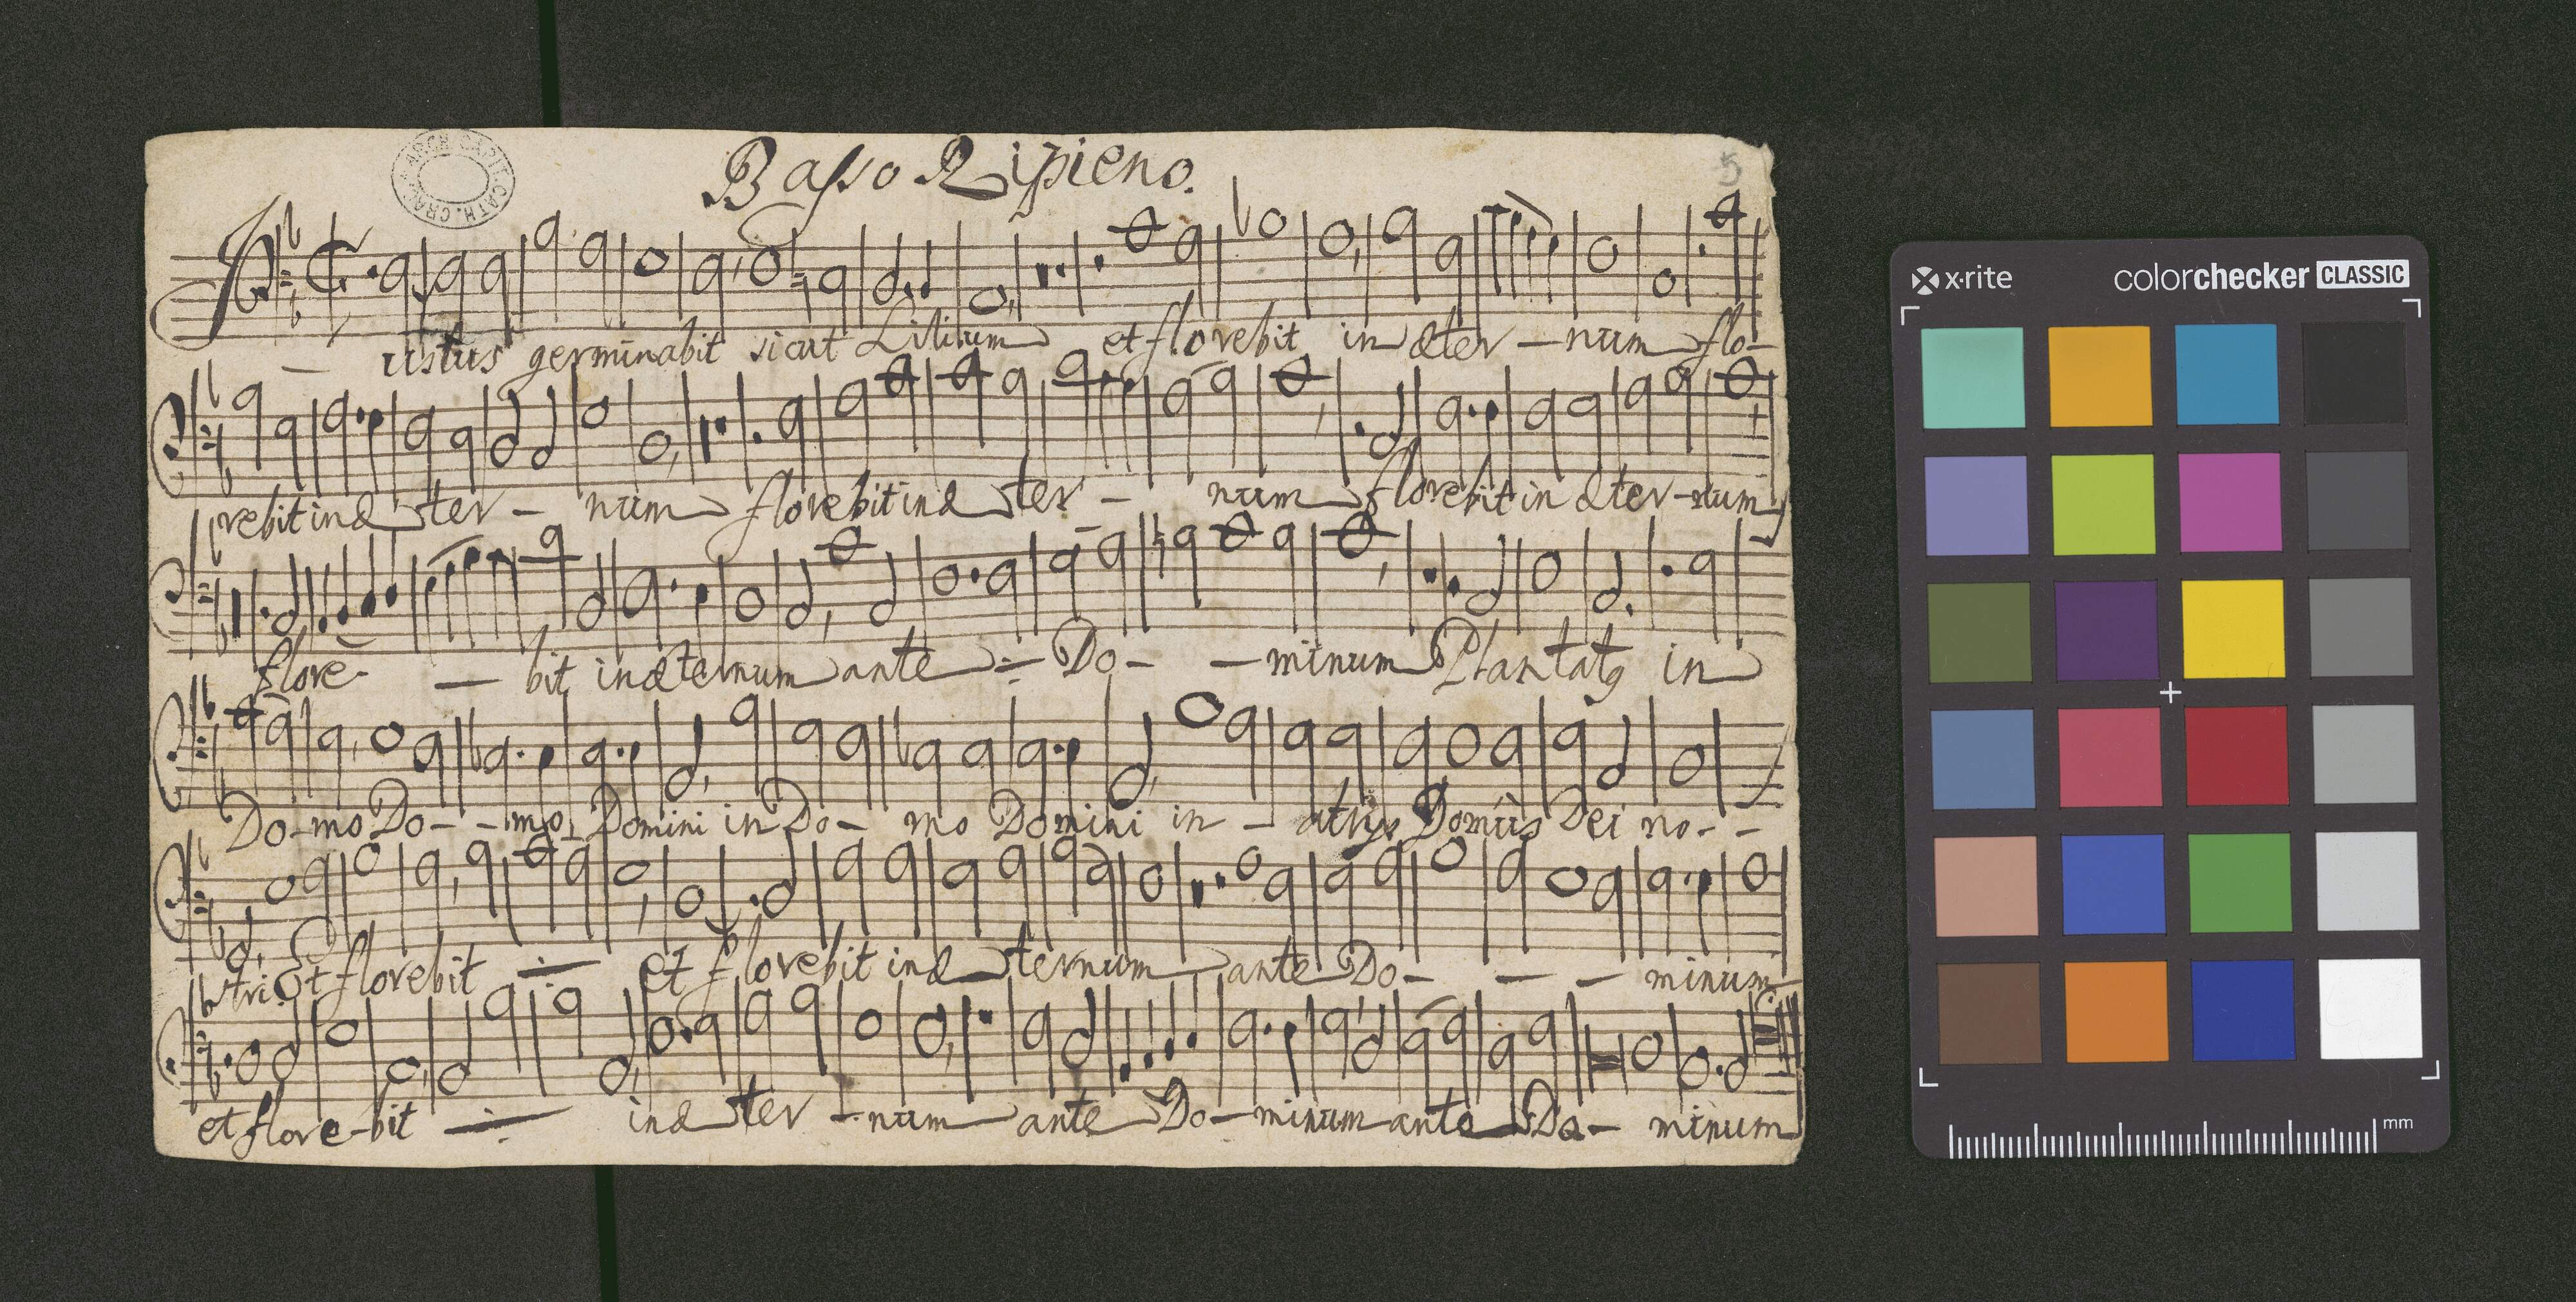 Basso Ripieno.
5
ARCH. CAPIT. CATH. CRAC.
Justus germinabit sicut Lilium et florebit in æter - num flo -
rebit in æ ter - num florebit in æ ter - num florebit in æter - num
flore - - bit in æternum ante Do - - minum Plantatq in
Do - mo Do - - mo Domini in Do - mo Domini in - atrijs Domùs Dei no - -
stri Et florebit et florebit in æ ternum ante Do - - - minum
et flore - bit in æ ter - num ante Do - minum ante Do - minum
x·rite colorchecker CLASSIC
mm